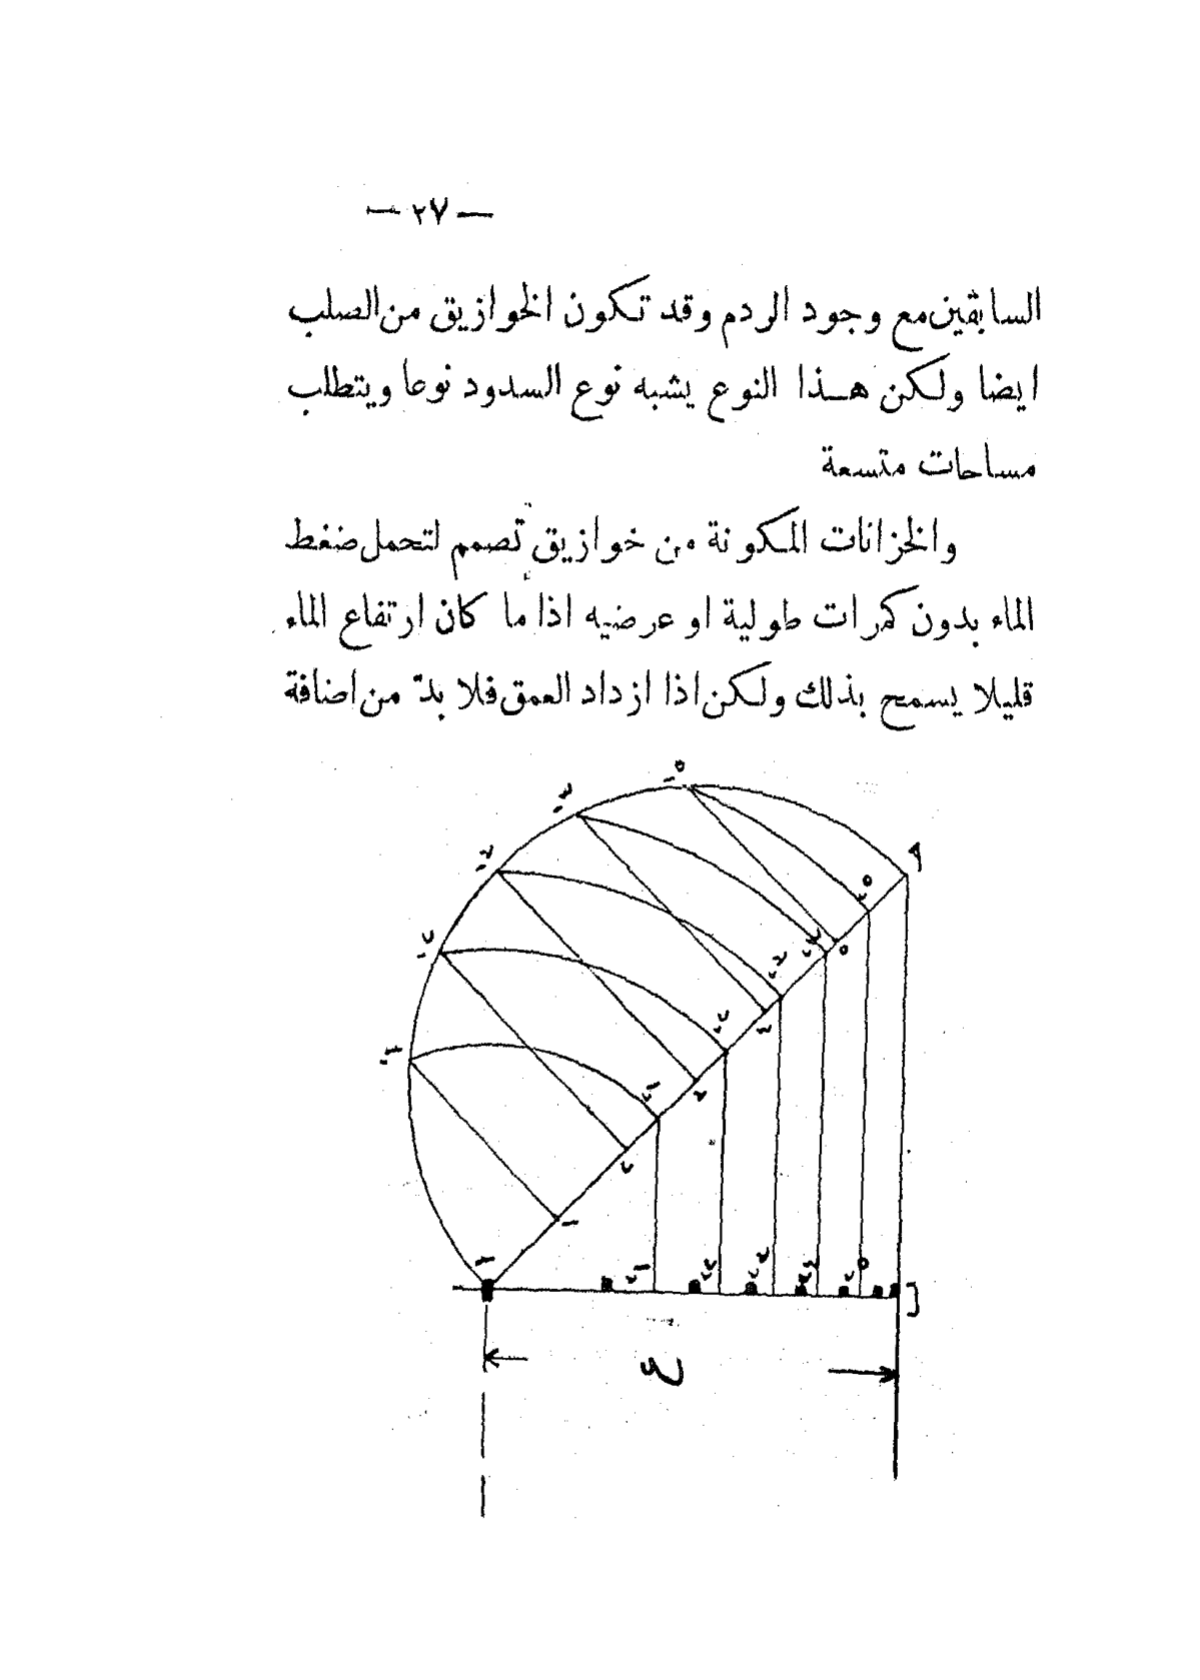 — ٢٧ —
السابقين مع وجود الردم وقد تكون الخوازيق من الصلب
ايضا ولكن هــذا النوع يشبه نوع السدود نوعا ويتطلب
مساحات متسعة
والخزانات المكونة من خوازيق تصمم لتحمل ضغط
الماء بدون كمرات طولية او عرضيه اذا ما كان ارتفاع الماء
قليلا يسمح بذلك ولكن اذا ازداد العمق فلا بدّ من اضافة
ع